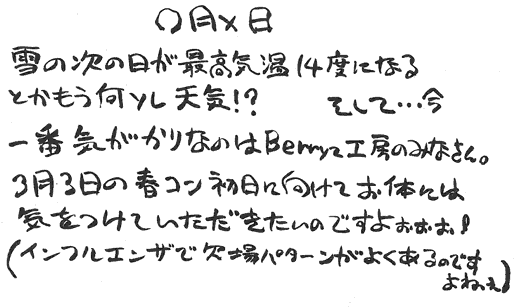 〇月×日
雪の次の日が最高気温14度になる
とかもう何ソレ天気!? そして…今
一番気がかりなのはBerryz工房のみなさん。
3月3日の春コン初日に向けてお体には
気をつけていただきたいのですよぉぉぉ!
(インフルエンザで欠場パターンがよくあるのです
よねぇ)